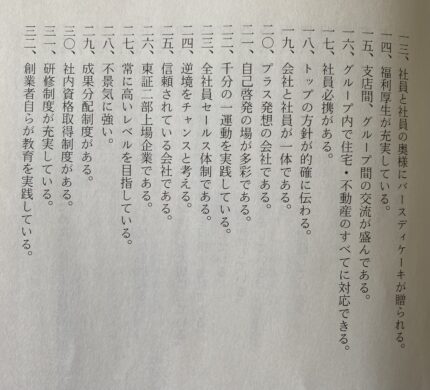 一三、社員と社員の奥様にバースディケーキが贈られる。
一四、福利厚生が充実している。
一五、支店間、グループ間の交流が盛んである。
一六、グループ内で住宅・不動産のすべてに対応できる。
一七、社員必携がある。
一八、トップの方針が的確に伝わる。
一九、会社と社員が一体である。
二〇、プラス発想の会社である。
二一、自己啓発の場が多彩である。
二二、千分の一運動を実践している。
二三、全社員セールス体制である。
二四、逆境をチャンスと考える。
二五、信頼されている会社である。
二六、東証二部上場企業である。
二七、常に高いレベルを目指している。
二八、不景気に強い。
二九、成果分配制度がある。
三〇、社内資格取得制度がある。
三一、研修制度が充実している。
三二、創業者自らが教育を実践している。